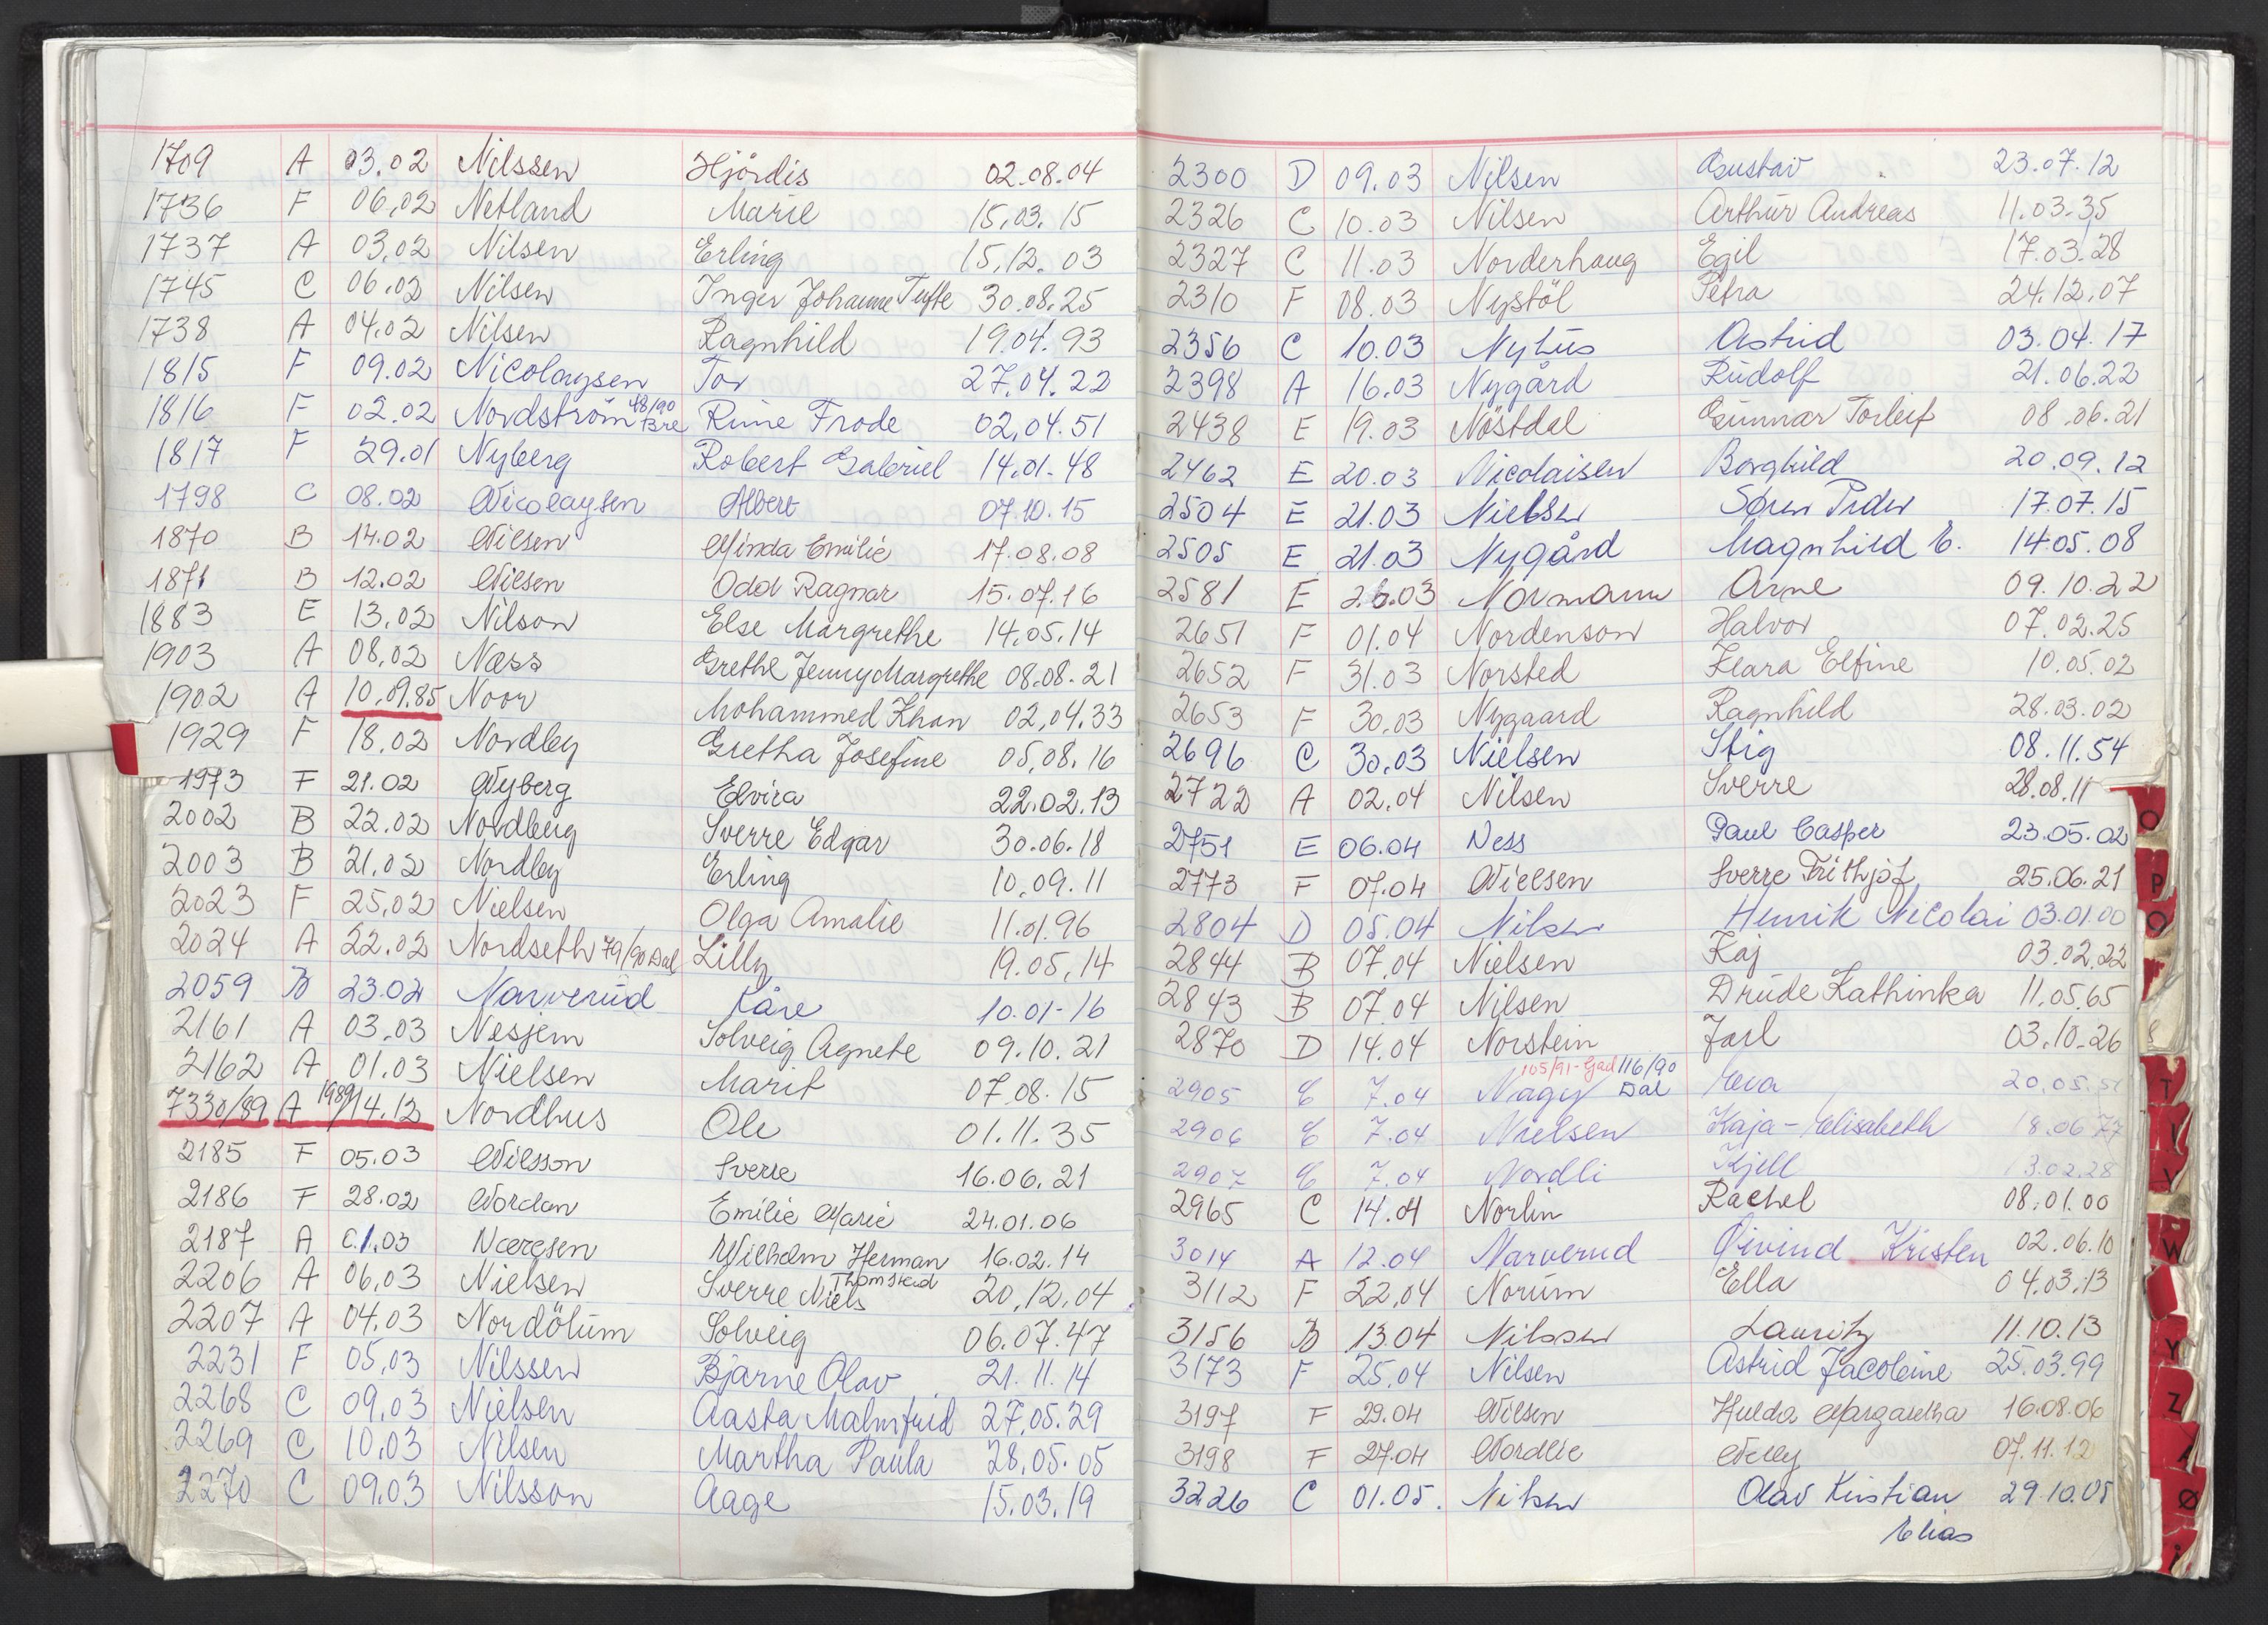 1709 A 03.02 Nilssen Hjördis 02.08.04
1736 F 06.02 Netland Marie 15.03.15
1737 A 03.02 Nilsen Erling 15.12.03
1745 C 06.02 Nilsen Inger Johanne Tufte 30.08.25
1738 A 04.02 Nilsen Ragnhild 19.04.93
1815 F 09.02 Nicolaysen Tor 27.04.22
1816 F 02.02 Nordström 48/90 Bre Rune Frode 02.04.51
1817 F 29.01 Nyberg Robert Gabriel 14.01-48
1798 C 08.02 Nicolaysen Albert 07.10.15
1870 B 14.02 Nilsen Minda Emilie 17.08.08
1871 B 12.02 Nilsen Odd Ragnar 15.07.16
1883 E 13.02 Nilson Else Margrethe 14.05.14
1903 A 08.02 Næss Grethe Jenny Margrethe 08.08.21
1902 A 10.09.85 Noor Mohammed Khan 02.04.33
1929 F 18.02 Nordby Gretha Josefine 05.08.16
1973 F 21.02 Nyberg Elvira 22.02.13
2002 B 22.02 Nordberg Sverre Edgar 30.06.18
2003 B 21.02 Nordby Erling 10.09.11
2023 F 25.02 Nielsen Olga Amalie 11.01.96
2024 A 22.02 Nordseth 79/90 Dal Lilly 19.05.14
2059 B 23.02 Narverud Kåre 10.01-16
2161 A 03.03 Nesjem Solveig Agnete 09.10.21
2162 A 01.03 Nielsen Marit 07.08.15
7330/89 A 1989/14.12 Nordhus Ole 01.11.35
2185 F 05.03 Nilsson Sverre 16.06.21
2186 F 28.02 Nordan Emilie Marie 24.01.06
2187 A 01.03 Næresen Wilhelm Herman 16.02.14
2206 A 06.03 Nielsen Sverre Niels Thomstad 20.12.04
2207 A 04.03 Nordölum Solveig 06.07.47
2231 F 05.03 Nilssen Bjarne Olav 21.11.14
2268 C 09.03 Nielsen Aasta Malmfrid 27.05.29
2269 C 10.03 Nilsen Martha Paula 28.05.05
2270 C 09.03 Nilsson Aage 15.03.19
2300 D 09.03 Nilsen Gustav 23.07.12
2326 C 10.03 Nilsen Arthur Andreas 11.03.35
2327 C 11.03 Norderhaug Egil 17.03.28
2310 F 08.03 Nystöl Petra 24.12.07
2356 C 10.03 Nyhus Astrid 03.04.17
2398 A 16.03 Nygård Rudolf 21.06.22
2438 E 19.03 Nöstdal Gunnar Torleif 08.06.21
2462 E 20.03 Nicolaisen Borghild 20.09.12
2504 E 21.03 Nielsen Søren Peder 17.07.15
2505 E 21.03 Nygård Magnhild E. 14.05.08
2581 E 26.03 Normann Arne 09.10.22
2651 F 01.04 Nordenson Halvor 07.02.25
2652 F 31.03 Norsted Klara Elfine 10.05.02
2653 F 30.03 Nygaard Ragnhild 28.03.02
2696 C 30.03 Nielsen Stig 08.11.54
2722 A 02.04 Nilsen Sverre 28.08.11
2751 E 06.04 Ness Paul Casper 23.05.02
2773 F 07.04 Nielsen Sverre Frithjof 25.06.21
2804 D 05.04 Nilsen Henrik Nicolai 03.01.00
2844 B 07.04 Nielsen Kaj 03.02.22
2843 B 07.04 Nilsen Drude Kathinka 11.05.65
2870 D 14.04 Norstein Jarl 03.10.26
105/91-Gad 116/90
2905 E 7.04 Nagy Dal Eva 20.05.51
2906 E 7.04 Nielsen Kaja-Elisabeth 18.06 77
2907 E 7.04 Nordli Kjell 13.02.28
2965 C 14.04 Norlin Rachel 08.01.00
3014 A 12.04 Narverud Øivind Kristen 02.06.10
3112 F 22.04 Norum Ella 04.03.13
3156 B 13.04 Nilssen Lauritz 11.10.13
3173 F 25.04 Nilsen Astrid Jacobine 25.03.99
3197 F 29.04 Nilsen Hulda Margaretha 16.08.06
3198 F 27.04 Nordlie Nelly 07.11.12
3226 C 01.05. Nilsen Olav Kristian 29.10.05
Elias
O
P
Q
S
T
V
W
Y
Z
Ø